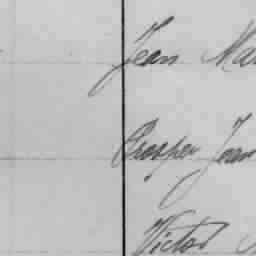 Jean Mar
Prosper Jean
Victor